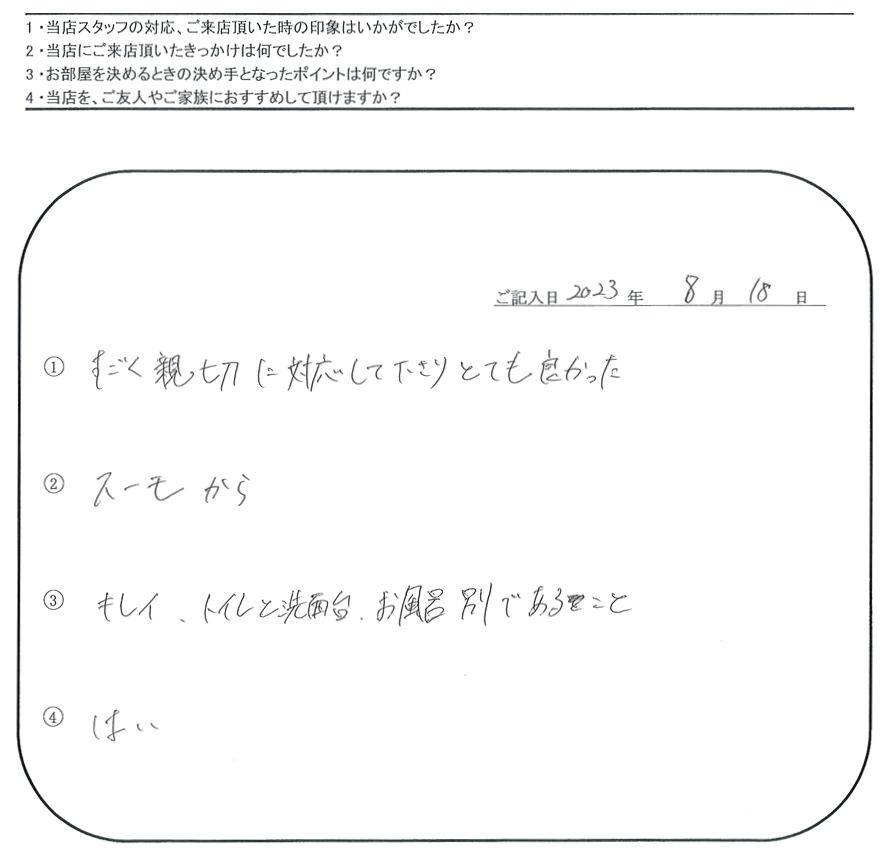 1・当店スタッフの対応、ご来店頂いた時の印象はいかがでしたか？
2・当店にご来店頂いたきっかけは何でしたか？
3・お部屋を決めるときの決め手となったポイントは何ですか？
4・当店を、ご友人やご家族におすすめして頂けますか？
ご記入日 2023 年 8 月 18 日
① すごく親切に対応して下さりとても良かった
② スーモから
③ キレイ、トイレと洗面台、お風呂別であること
④ はい